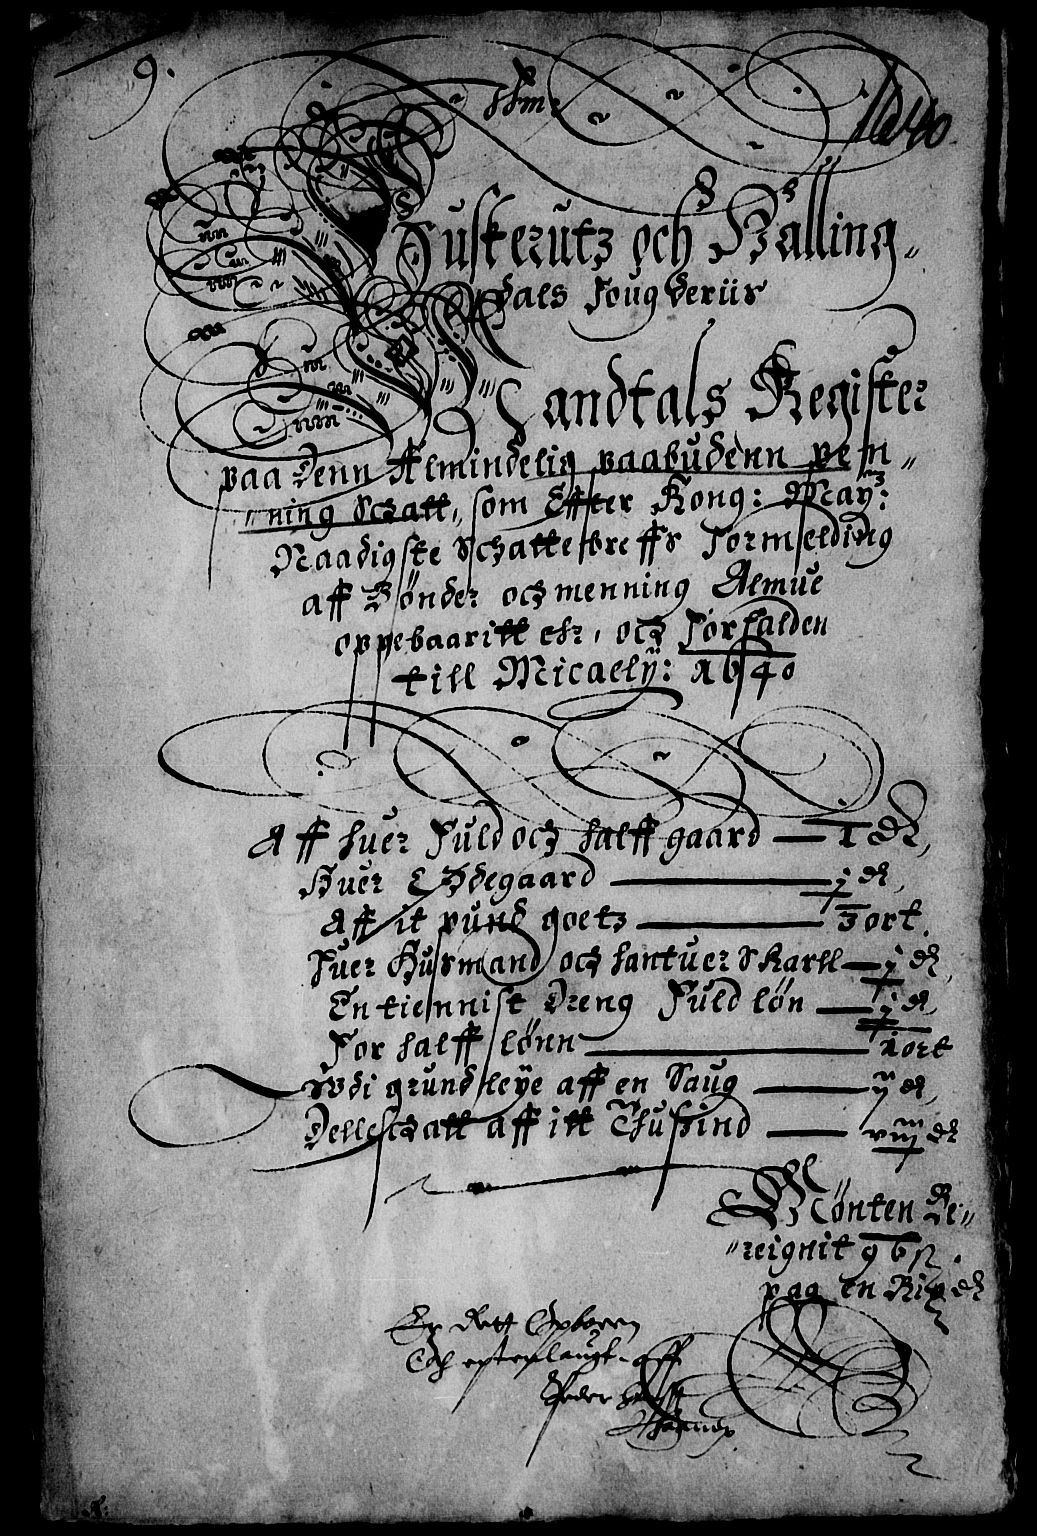 9.
1640
Buskerutz och Halling„
dals fougderiis
Mandtals Register
paa Denn Almindelig paabudenn pen„
„ning Schatt, som Effter Kong: May:
Naadigste Schattebreffs formelding
aff Bønder och menning Almue
oppebaaritt ehr, och forfalden
till Micaely: 1640
Aff huer fuld och halff gaard — 1 dr,
Huer Ødegaard — j dr,
Aff it pund goetz — 3 ort.
Huer Husmand och hantuerskarll — j dr,
En tiennist Dreng fuld løn — j dr,
For halff lønn — 1 ort
Wdi grundleye aff en Saug — ij dr,
Delleschatt aff itt Thussind — viij dr
Mønten Be„
„reignit 96 ſ.
paa en Rix dr
Er Rett
Och aff
Peder